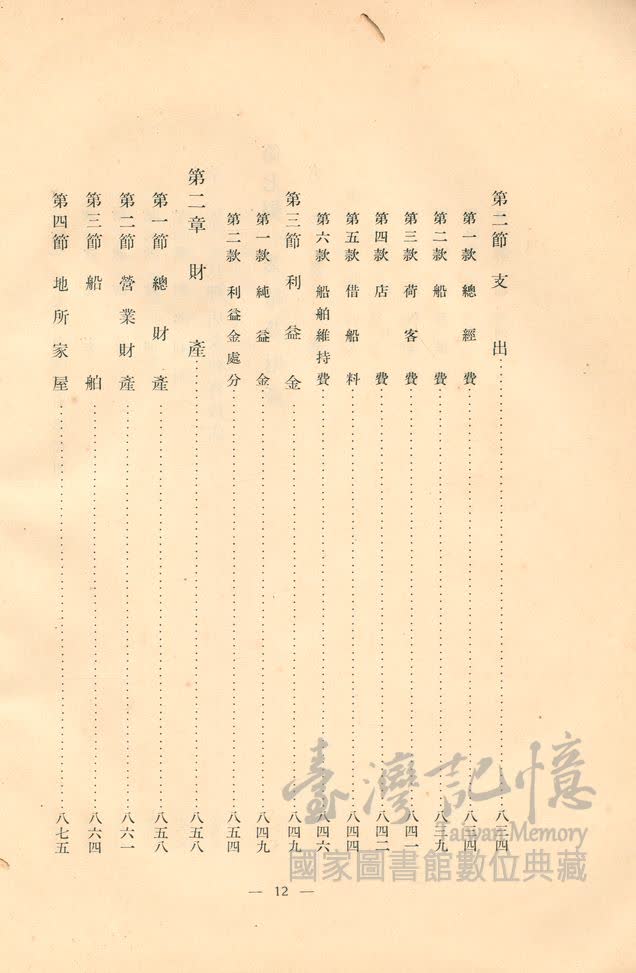 第二節 支出……八三四
第一款 總經費……八三四
第二款 船費……八三九
第三款 荷客費……八四一
第四款 店費……八四二
第五款 借船料……八四四
第六款 船舶維持費……八四六
第三節 利益金……八四九
第一款 純益金……八四九
第二款 利益金處分……八五四
第二章 財產……八五八
第一節 總財產……八五八
第二節 營業財產……八六一
第三節 船舶……八六四
第四節 地所家屋……八七五
— 12 —
臺灣記憶
Taiwan Memory
國家圖書館數位典藏